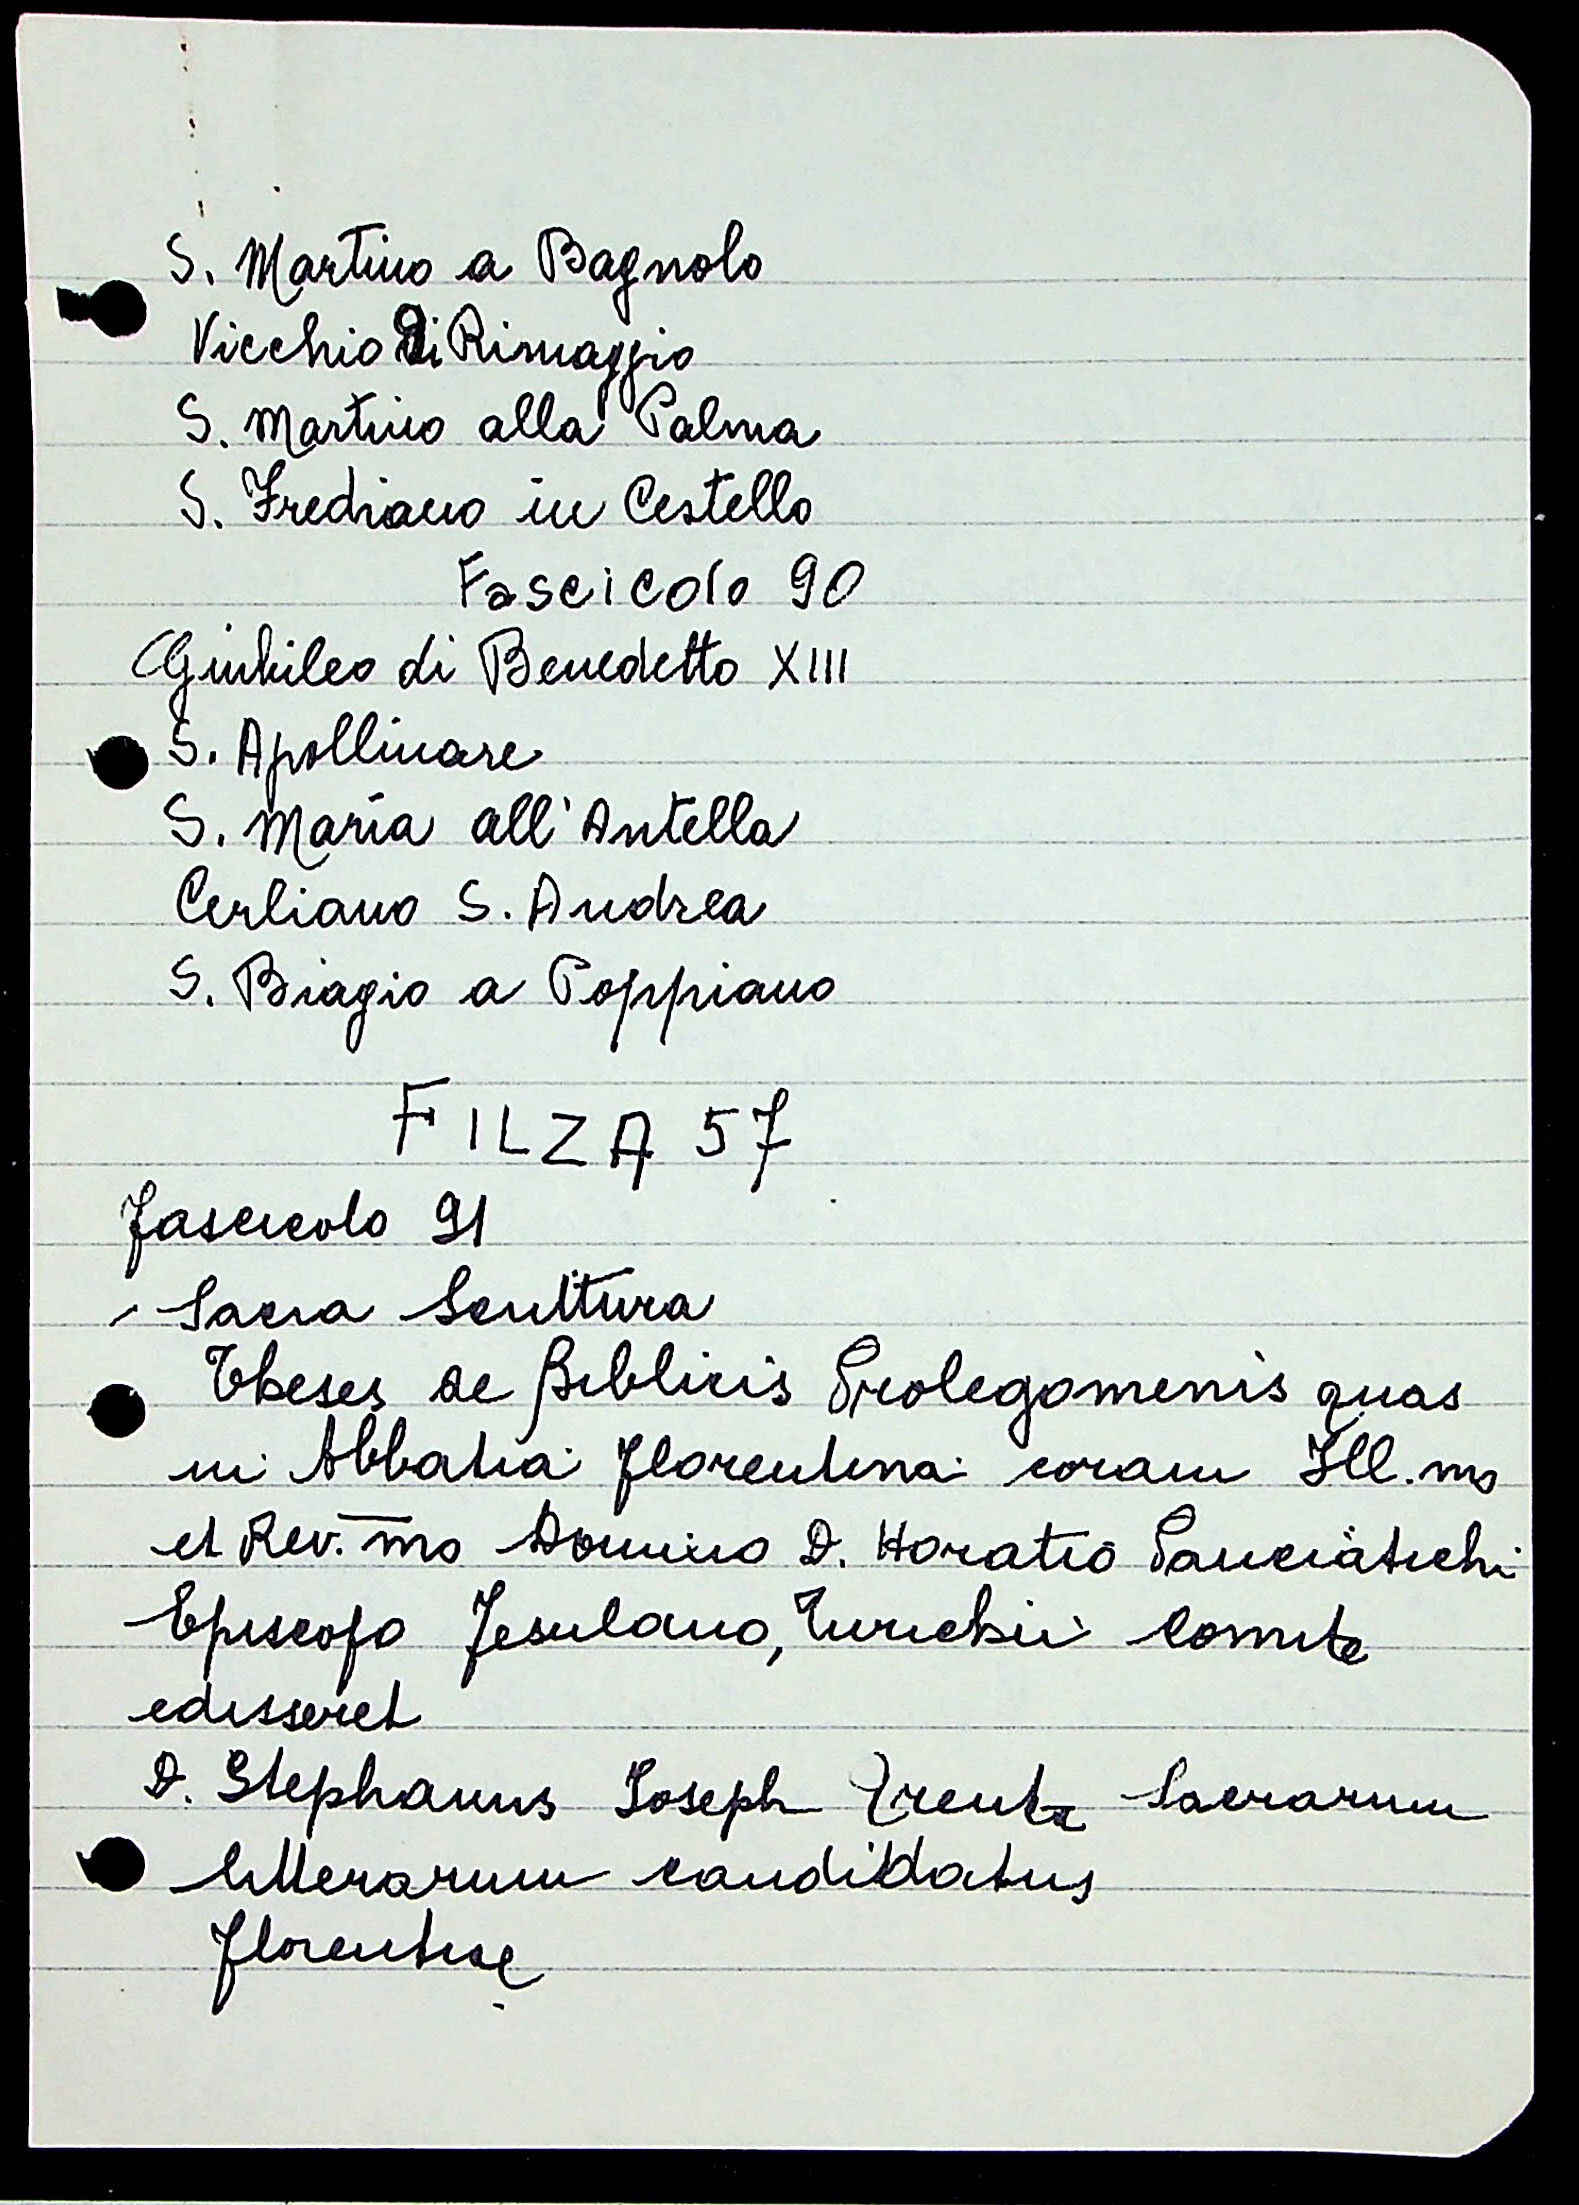 S. Martino a Bagnolo
Vicchio di Rimaggio
S. Martino alla Palma
S. Frediano in Cestello
Fascicolo 90
Giubileo di Benedetto XIII
S. Apollinare
S. Maria all'Antella
Cerliano S. Andrea
S. Biagio a Poppiano
FILZA 57
Fascicolo 91
- Sacra Scrittura
Theses de Biblicis Prolegomenis quas
in Abbatia Florentina coram Ill.mo
et Rev.mo Domino D. Horatio Panciatichi
Episcopo Fesulano, Turichii Comite
edisseret
D. Stephanus Joseph Trenta Sacrarum
litterarum candidatus
Florentiae